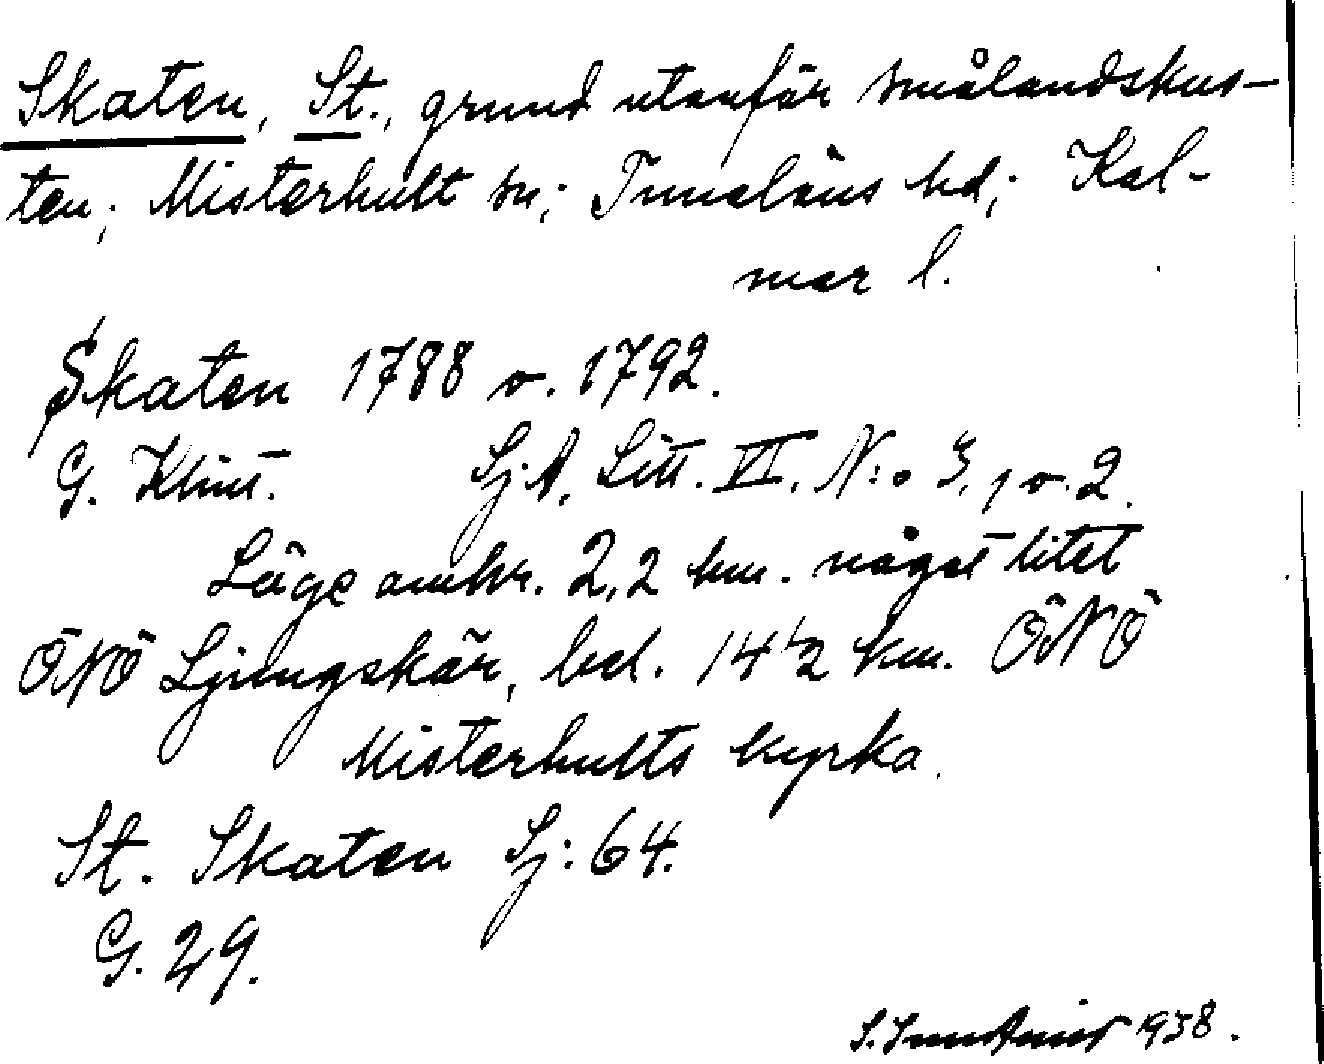 Skaten, St., grund utanför Smålandskus-
ten; Misterhult sn; Tunaläns hd; Kal-
mar l.
Skaten 1788 o. 1792.
G. Klint. Sj.A. Litt. VI. N:o 3, 1 o. 2.
Läge omkr. 2,2 km. något litet
ÖNÖ Ljungskär, bel. 14 1/2 km. ÖNÖ
Misterhults kyrka.
St. Skaten Sj: 64.
G. 29.
S. 1938.